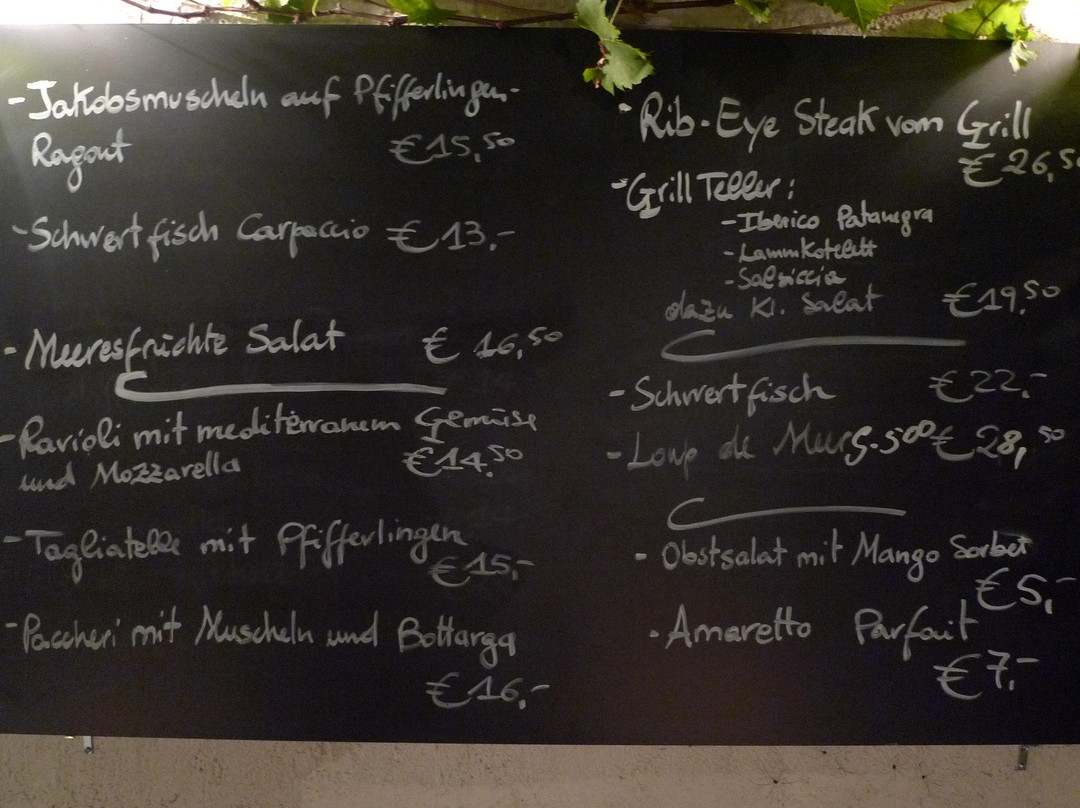 - Jakobsmuscheln auf Pfifferlingen-
Ragout €15,50
- Schwertfisch Carpaccio €13,-
- Meeresfrüchte Salat € 16,50
- Ravioli mit mediterranem Gemüse
und Mozzarella €14,50
- Tagliatelle mit Pfifferlingen
€15,-
- Paccheri mit Muscheln und Bottarga
€16,-
- Rib-Eye Steak vom Grill
€26,50
- Grill Teller:
- Iberico Patanegra
- Lammkotelett
- Salsiccia
dazu Kl. Salat €19,50
- Schwertfisch €22,-
- Loup de Mer €28,50
- Obstsalat mit Mango Sorbet
€5,-
- Amaretto Parfait
€7,-